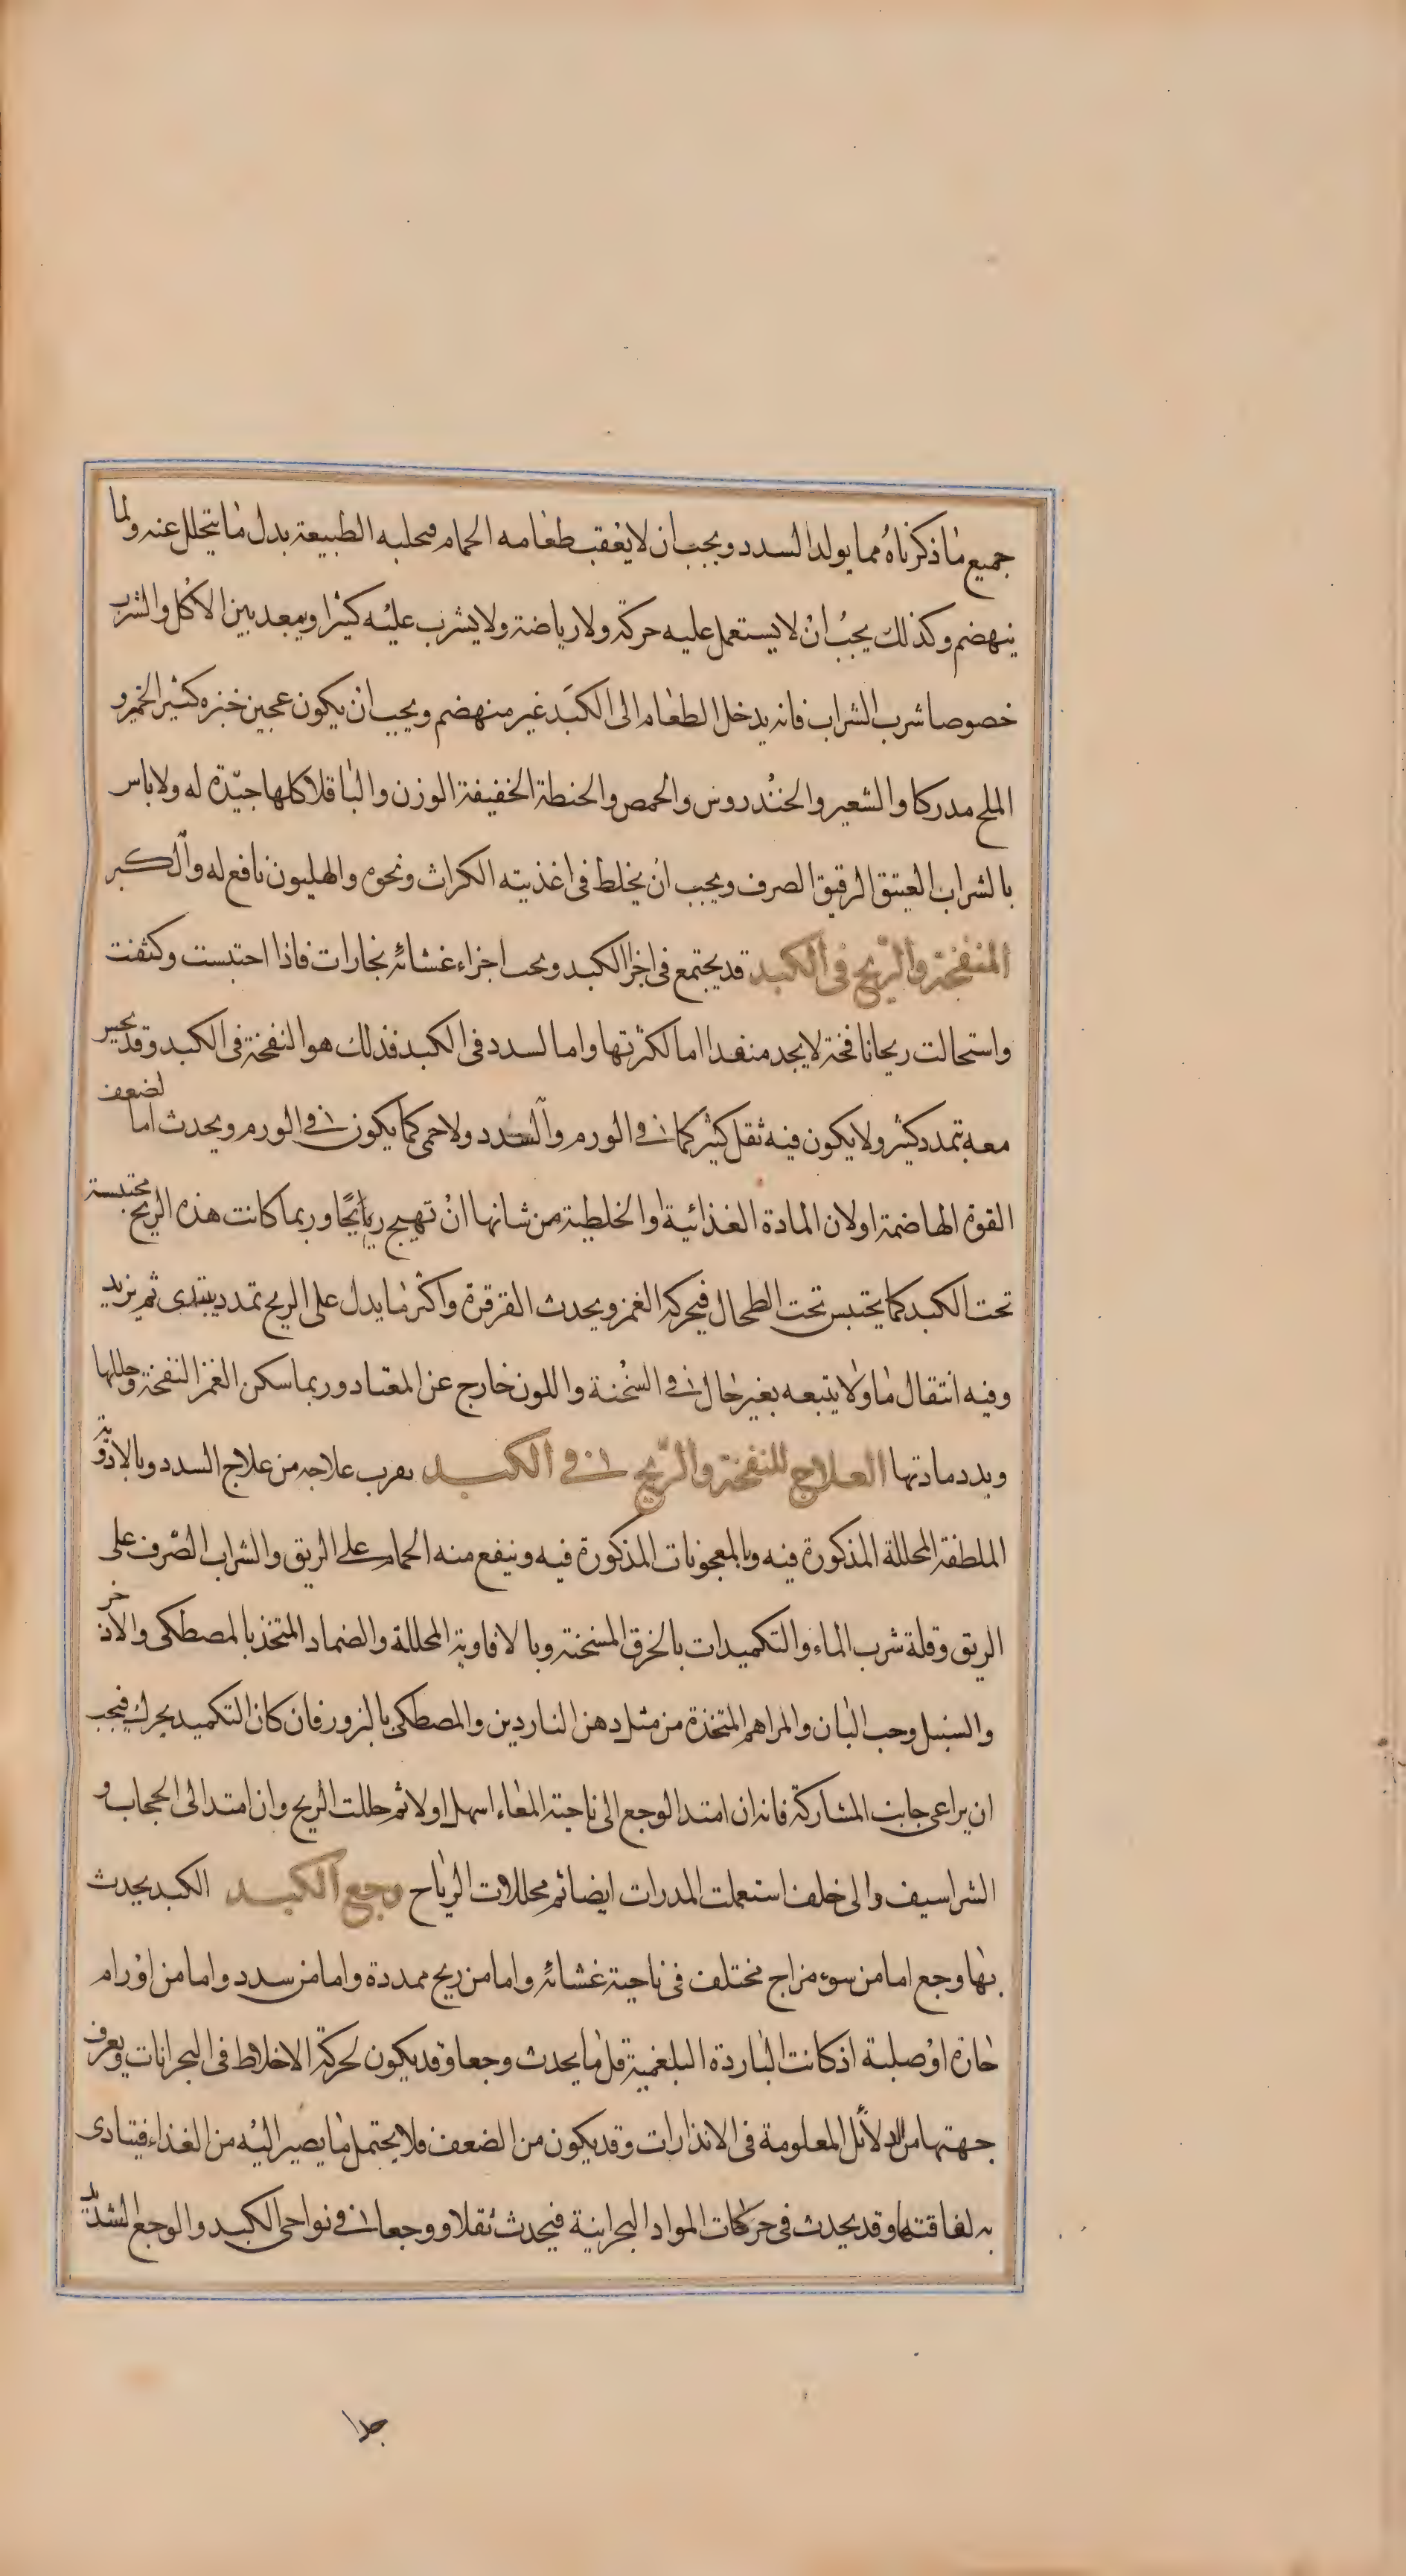 جميع ماذكرناه مما يولد السدد ويجب ان لا يعقب طعامه الحمام فتجلبه الطبيعة بدل ما يتحلل عنه ولما
ينهضم وكذلك يجب ان لا يستعمل عليه حركة ولا رياضة ولا يشرب عليه كثيرا ويبعد بين الاكل والشرب
خصوصا شرب الشراب فانه يدخل الطعام الى الكبد غير منهضم ويجب ان يكون عجين خبزه كثير الخمير و
الملح مدركا والشعير والخندروس والحمص والحنطة الخفيفة الوزن والباقلا كلها جيدة له ولا باس
بالشراب العتيق الرقيق الصرف ويجب ان يخلط في اغذيته الكراث ونحوه والهليون نافع له والكبر
المنفخة والريح في الكبد قد يجتمع في اجزا الكبد وتحت اجزاء غشائه بخارات فاذا احتبست وكثفت
واستحالت ريحا نافخة لا يجد منفدا اما لكثرتها واما لسدد في الكبد فذلك هو النفخة في الكبد وقد يحس
معه تمدد كثير ولا يكون فيه ثقل كثير كما في الورم والسدد ولا حمى كما يكون في الورم ويحدث اما لضعف
القوة الهاضمة او لان المادة الغذائية او الخلطية من شانها ان تهيج رياحًا وربما كانت هذه الريح محتبسة
تحت الكبد كما يحتبس تحت الطحال فيحركه الغمز ويحدث القرقرة واكثر ما يدل على الريح تمدد يبتدى ثم يزيد
وفيه انتقال ما ولا يتبعه بغير حال في السخنة واللون خارج عن المعتاد وربما سكن الغمز النفخة وحللها
وبدد مادتها العلاج للنفخة والريح في الكبد يقرب علاجه من علاج السدد وبالادوية
الملطفة المحللة المذكورة فيه وبالمعجونات المذكورة فيه وينفع منه الحمام على الريق والشراب الصرف على
الريق وقلة شرب الماء والتكميدات بالخرق المسخنة وبالافاوية المحللة والضماد المتخذ بالمصطكى والاذخر
والسنبل وحب البان والمراهم المتخذة من مثل دهن الناردين والمصطكى بالبزور فان كان التكميد يحرك فيجب
ان يراعى جانب المشاركة فانه ان امتد الوجع الى ناحية المعاء اسهل اولا ثم حللت الريح وان امتد الى الحجاب و
الشراسيف والى خلف استعملت المدرات ايضا ثم محللات الرياح وجع الكبد الكبد يحدث
بها وجع اما من سوء مزاج مختلف في ناحية غشائه واما من ريح ممددة واما من سدد واما من اورام
حارة او صلبة اذ كانت الباردة البلغمية قل ما يحدث وجعا وقد يكون لحركة الاخلاط في البحرانات ويعرف
جهتها من الدلائل المعلومة في الانذارات وقد يكون من الضعف فلا يحتمل ما يصير اليه من الغذاء فيتادى
به لفاقتها وقد يحدث في حركات المواد البحرانية فيحدث ثقلا ووجعا في نواحى الكبد والوجع الشديد
جدا